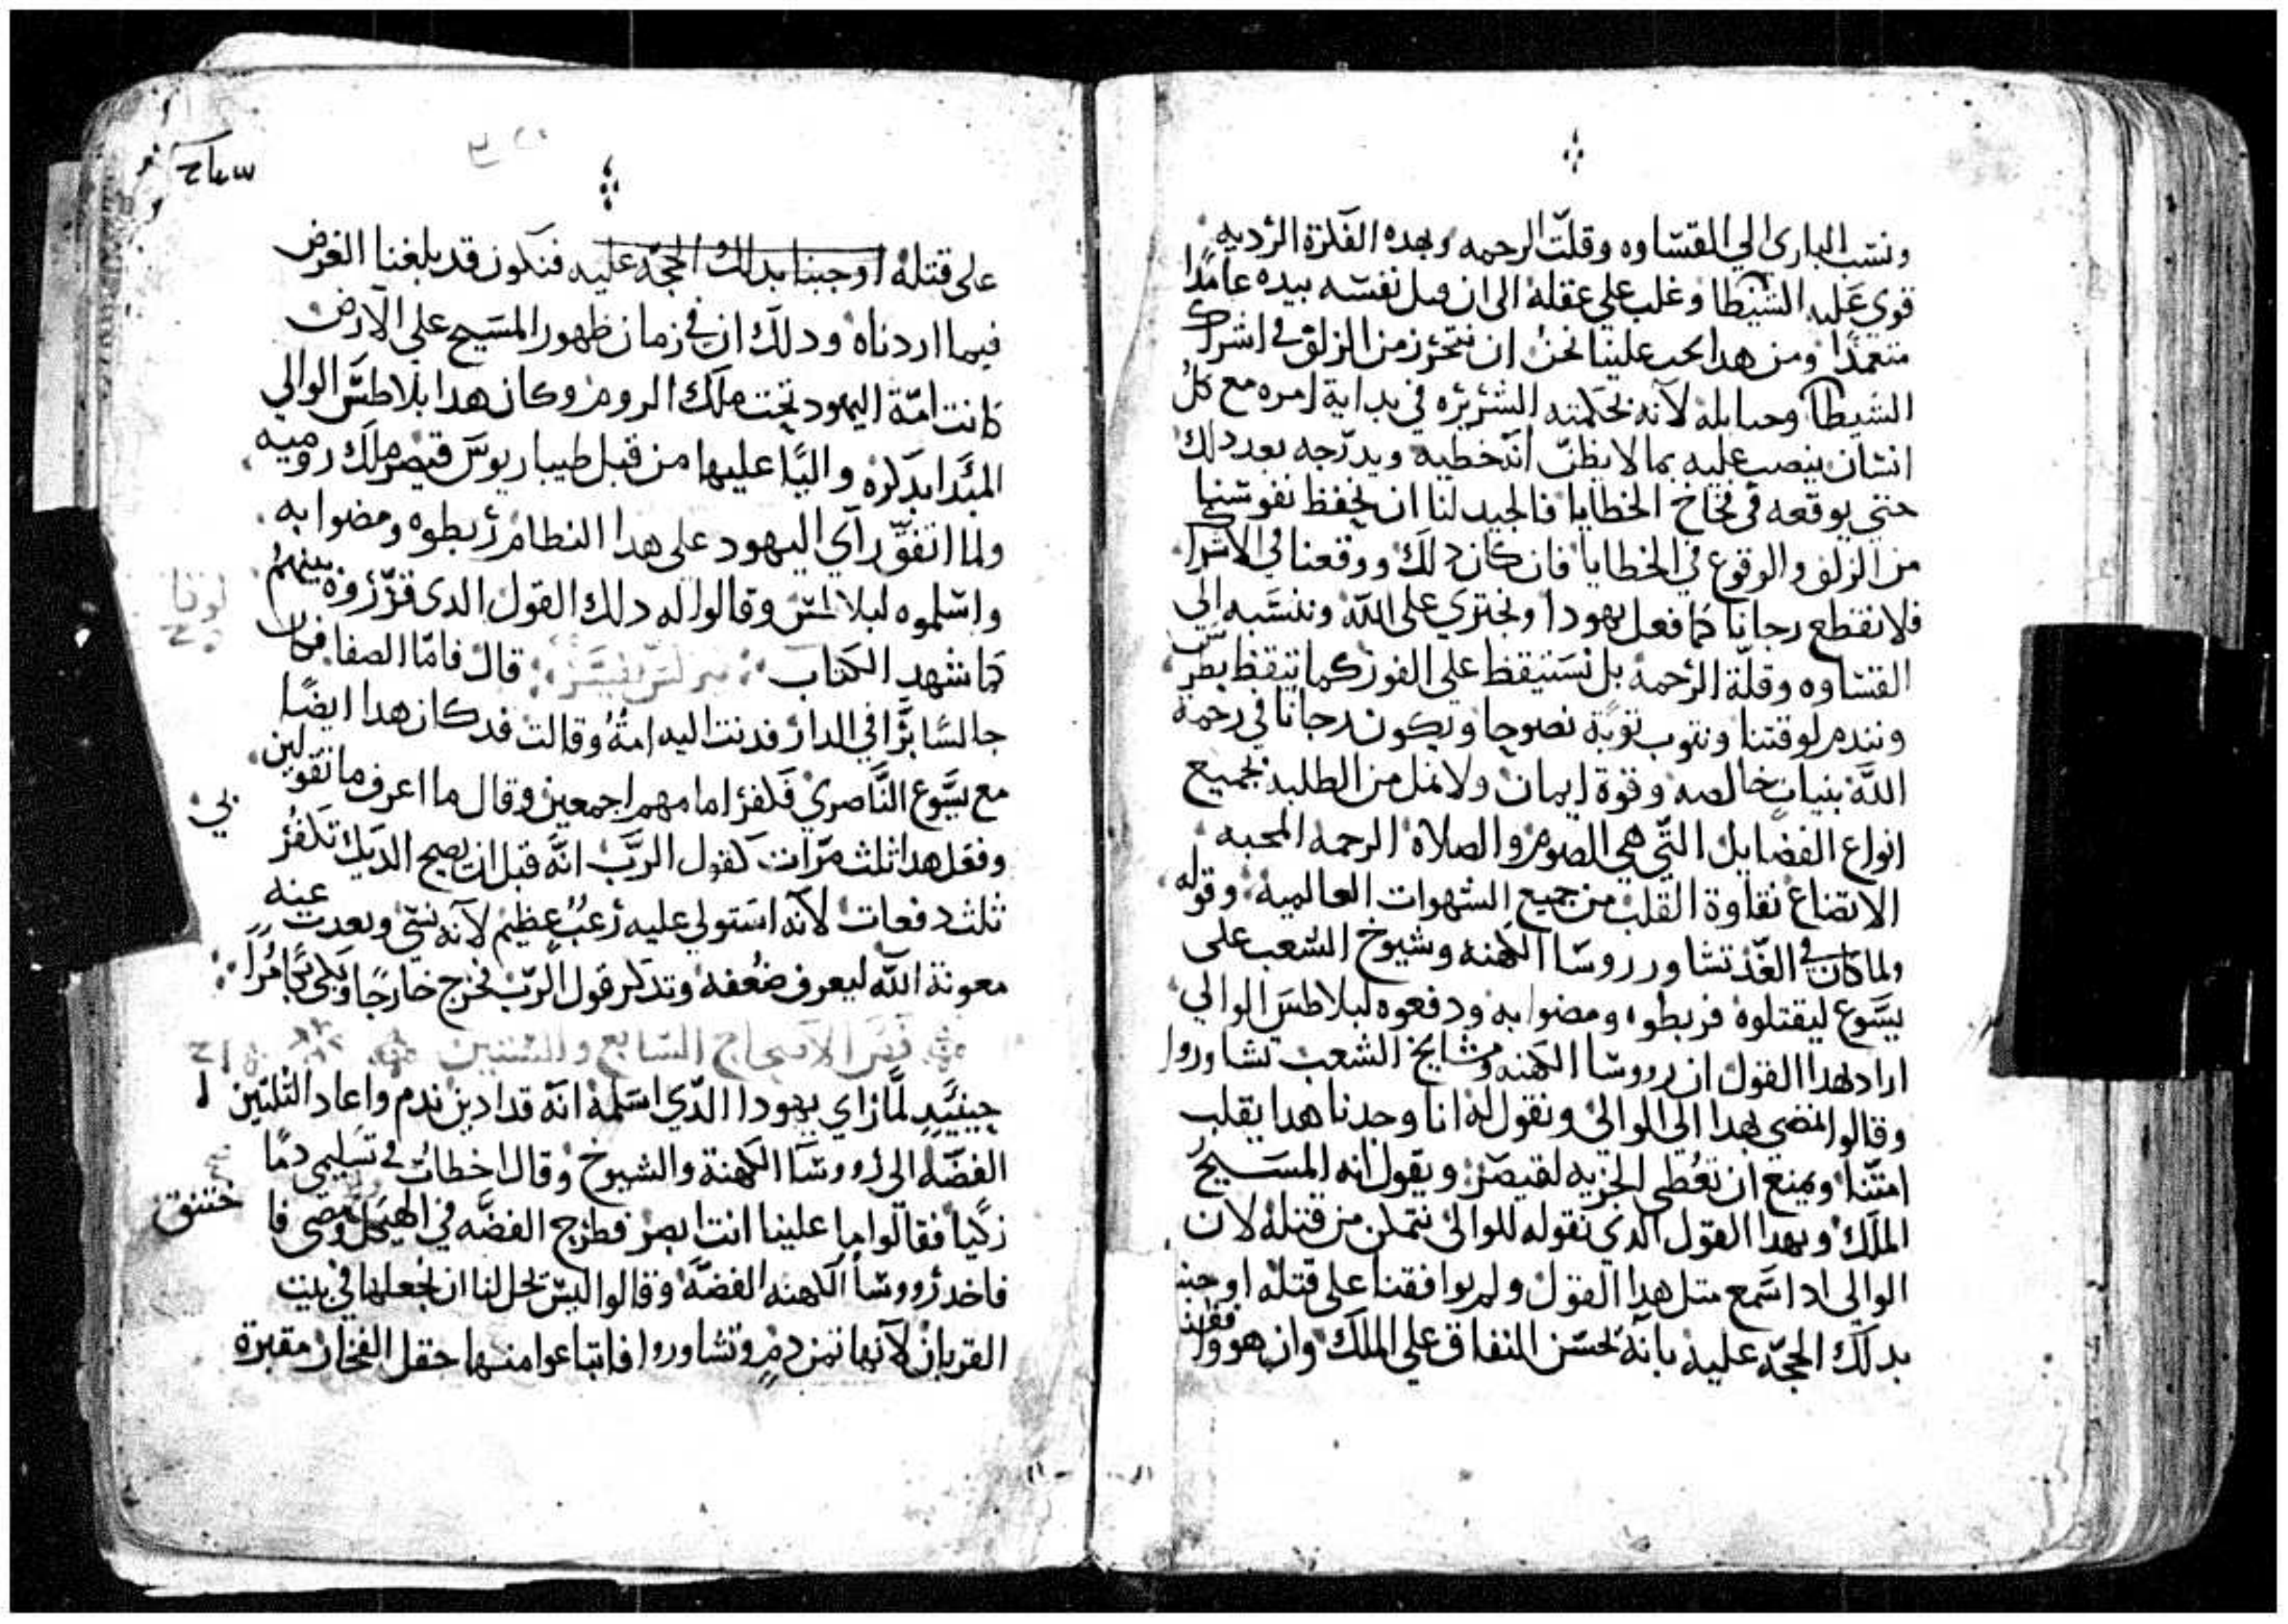 ونسب البارى الي القساوه وقلت الرحمه وبهده الفكرة الرديه
قوي عليه الشيطا وغلب علي عقله الى ان قتل نفسه بيده عامدًا
متعمدًا ومن هدا يجب علينا نحن ان نتحرز من الزلق في اشراك
الشيطا وحبايله لانه بحكمته الشريره في بداية امره مع كل
انسان ينصب عليه بما لا يظن انه خطيه ويدرجه بعد دلك
حتي يوقعه في فخاخ الخطايا فالجيد لنا ان نحفظ نفوسنا
من الزلق والوقوع في الخطايا فان كان دلك ووقعنا في الاشراك
فلا نقطع رجانا كما فعل يهودا ونجتري على الله وننسبه الى
القساوه وقلة الرحمه بل نستيقظ علي الفور كما تيقظ بطرس
ونندم لوقتنا ونتوب توبة نصوحا ويكون رجانا في رحمة
الله بنيات خالصه وقوة ايمان ولا نمل من الطلبه بجميع
انواع الفضايل التي هي الصوم والصلاه الرحمه المحبه
الاتضاع نقاوة القلب من جميع الشهوات العالميه وقوله
ولما كان في الغد تشاور روسا الكهنه وشيوخ الشعب على
يسوع ليقتلوه فربطوه ومضوا به ودفعوه لبلاطس الوالي
اراد بهدا القول ان رووسا الكهنه ومشايخ الشعب تشاوروا
وقالوا نمضي بهدا الى الوالي ونقول له انا وجدنا هدا يقلب
امتنا ويمنع ان تعطى الجزيه لقيصر ويقول انه المسيح
الملك وبهدا القول الدي نقوله للوالي نتمكن من قتله لان
الوالي ادا سمع متل هدا القول ولم يوافقنا على قتله اوجبنا
بدلك الحجه عليه بانه يحسن النفاق علي الملك وان هو وافقنا
على قتله اوجبنا بدلك الحجه عليه فنكون قد بلغنا الغرض
فيما اردناه ودلك ان في زمان ظهور المسيح على الارض
كانت امة اليهود تحت ملك الروم وكان هدا بلاطس الوالي
المبدا بدكره واليًا عليها من قبل طيباريوس قيصر ملك روميه
ولما اتفق رآي اليهود على هدا النظام ربطوه ومضوا به
واسلموه لبلاطس وقالوا له دلك القول الدي قرروه بينهم
كما شهد الكتاب قال فامّا الصفا فكان
جالسًا برّا في الدار فدنت اليه امةُ وقالت قد كان هدا ايضًا
مع يسوع الناصري فكفر امامهم اجمعين وقال ما اعرف ما تقولين
وفعل هدا ثلث مرّات كقول الرب انه قبل ان يصيح الديك تكفر
ثلث دفعات لانه استولي عليه رعب عظيم لانه نسي وبعدت عنه
معونة الله ليعرف ضعفه وتدكر قول الرب فخرج خارجًا وبكى بكآ مُرًا
فصّ الاصحاح السابع والستين
حينيد لما راي يهودا الدي اسلمه انه قد ادين ندم واعاد التلتين
الفضه الى رووسا الكهنة والشيوخ وقال اخطات في تسليمي دمًا
زكيا فقالوا ما علينا انت ابصر فطرح الفضه في الهيكل ومضى فا
ختنق
فاخد رووسا الكهنه الفضه وقالوا ليس يحل لنا ان نجعلها في بيت
القربان لانها تمن دم وتشاوروا فابتاعوا منها حقل الفخار مقبرة